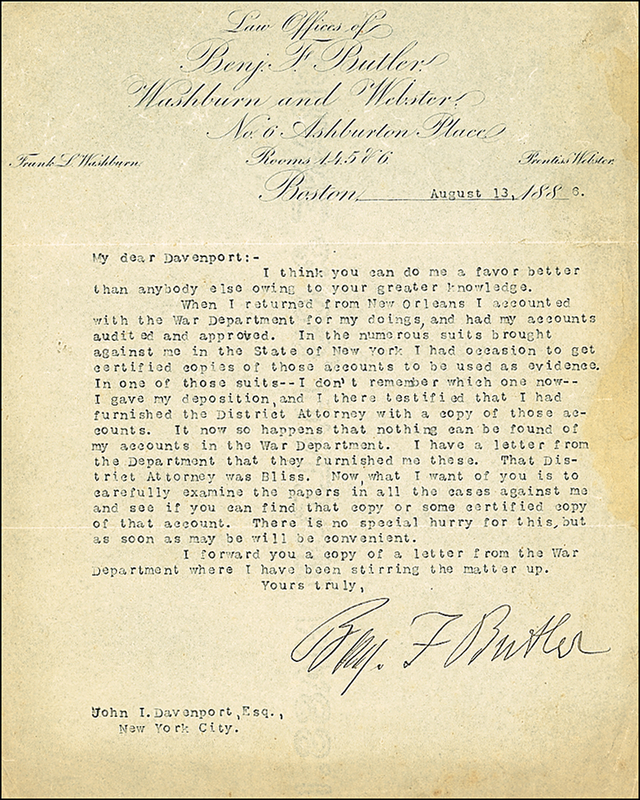 Law Offices of
Benj. F. Butler.
Washburn and Webster.
No. 6 Ashburton Place
Frank L. Washburn. Rooms 1,4,5 & 6. Prentiss Webster.
Boston, August 13, 1886.
My dear Davenport:-
I think you can do me a favor better
than anybody else owing to your greater knowledge.
When I returned from New Orleans I accounted
with the War Department for my doings, and had my accounts
audited and approved. In the numerous suits brought
against me in the State of New York I had occasion to get
certified copies of those accounts to be used as evidence.
In one of those suits--I don't remember which one now--
I gave my deposition, and I there testified that I had
furnished the District Attorney with a copy of those ac-
counts. It now so happens that nothing can be found of
my accounts in the War Department. I have a letter from
the Department that they furnished me these. That Dis-
trict Attorney was Bliss. Now, what I want of you is to
carefully examine the papers in all the cases against me
and see if you can find that copy or some certified copy
of that account. There is no special hurry for this, but
as soon as may be will be convenient.
I forward you a copy of a letter from the War
Department where I have been stirring the matter up.
Yours truly,
Benj. F Butler
John I. Davenport, Esq.,
New York City.